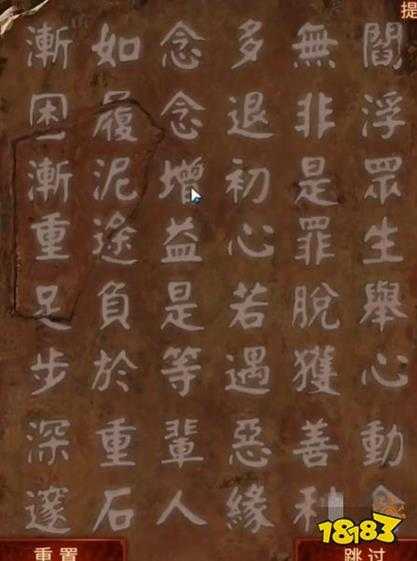 提
閻浮眾生舉心動
無非是罪脫獲善利
多退初心若遇惡緣
念念增益是等輩人
如履泥途負於重石
漸困漸重足步深邃
重置
跳过
18183